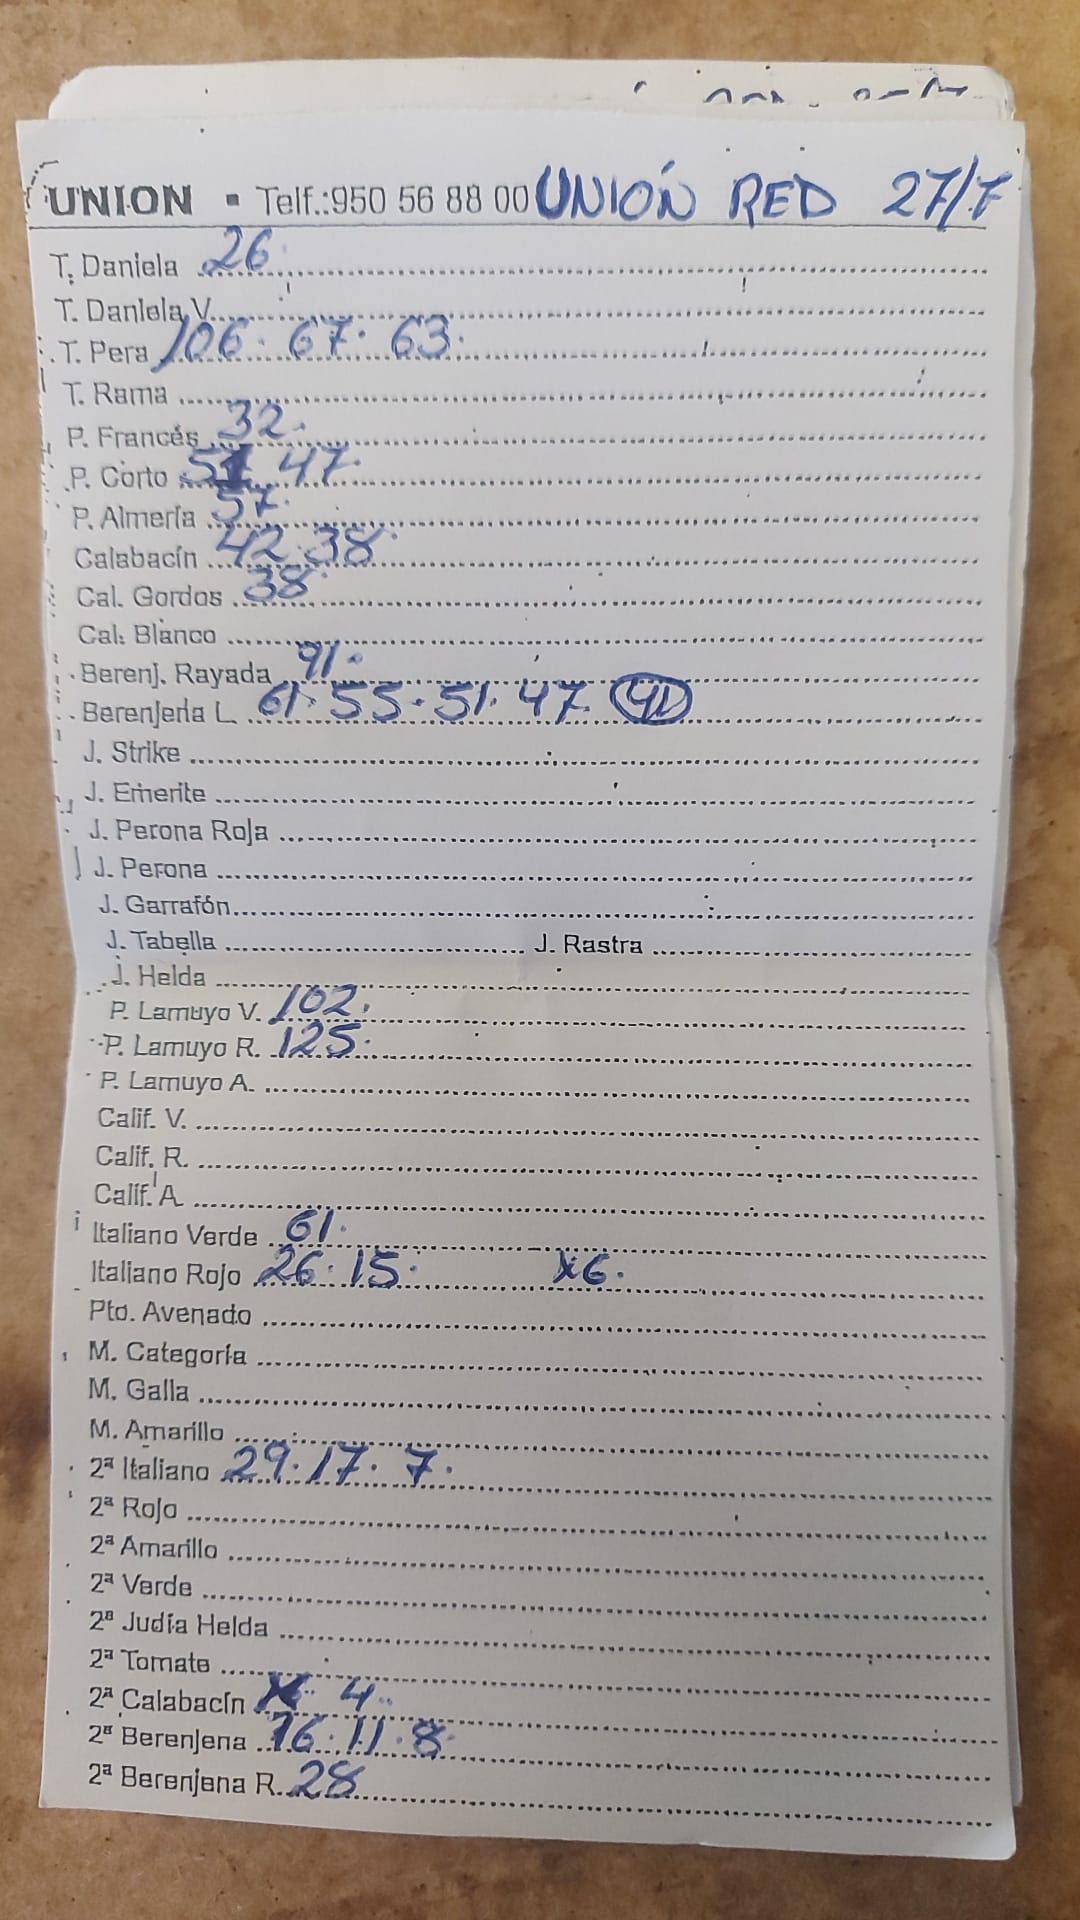 UNION - Telf.:950 56 88 00 UNIÓN RED 27/7
T. Daniela 26.
T. Daniela V.
T. Pera 106. 67. 63.
T. Rama
P. Francés 32.
P. Corto 47.
P. Almería 57.
Calabacín 42. 38.
Cal. Gordos 38
Cal. Blanco
Berenj. Rayada 91.
Berenjena L 61. 55. 51. 47.
J. Strike
J. Emerite
J. Perona Roja
J. Perona
J. Garrafón
J. Tabella J. Rastra
J. Helda
P. Lamuyo V. 102.
P. Lamuyo R. 125.
P. Lamuyo A.
Calif. V.
Calif. R.
Calif. A.
Italiano Verde 61.
Italiano Rojo 26. 15. x6.
Pto. Avenado
M. Categoría
M. Galia
M. Amarillo
2ª Italiano 29. 17. 7.
2ª Rojo
2ª Amarillo
2ª Verde
2ª Judía Helda
2ª Tomate
2ª Calabacín 4.
2ª Berenjena 16. 11. 8.
2ª Berenjena R. 28